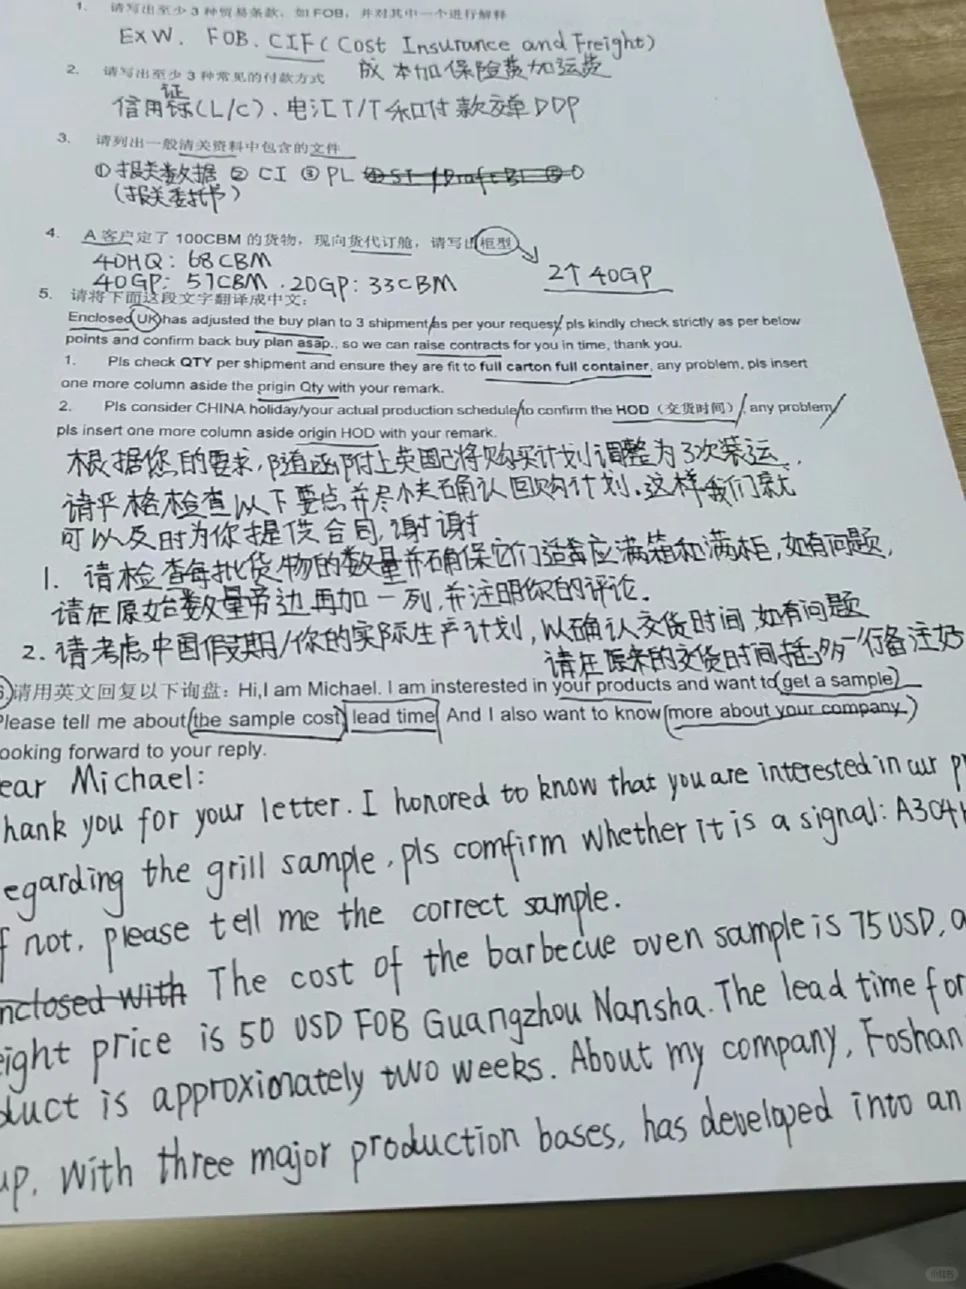 1. 请写出至少3种贸易条款，如FOB，并对其中一个进行解释
EXW. FOB. CIF(Cost Insurance and Freight)
成本加保险费加运费
2. 请写出至少3种常见的付款方式
证
信用标(L/C). 电汇T/T和付款交单DDP
3. 请列出一般清关资料中包含的文件
①报关数据 ② CI ③ PL ④ SI / Draft BL ⑤ O
(报关委托书)
4. A客户定了100CBM的货物，现向货代订舱，请写出柜型
40HQ: 68CBM
2个40GP
40GP: 57CBM . 20GP: 33CBM
5. 请将下面这段文字翻译成中文:
Enclosed UK has adjusted the buy plan to 3 shipment as per your request, pls kindly check strictly as per below
points and confirm back buy plan asap., so we can raise contracts for you in time, thank you.
1. Pls check QTY per shipment and ensure they are fit to full carton full container, any problem, pls insert
one more column aside the origin Qty with your remark.
2. Pls consider CHINA holiday/your actual production schedule to confirm the HOD（交货时间）, any problem,
pls insert one more column aside origin HOD with your remark.
根据您的要求，随函附上英国已将购买计划调整为3次装运，
请严格检查以下要点并尽快确认回购计划，这样我们就
可以及时为你提供合同，谢谢
1. 请检查每批货物的数量并确保它们适应满箱和满柜，如有问题，
请在原始数量旁边再加一列，并注明你的评论。
2. 请考虑中国假期/你的实际生产计划，以确认交货时间，如有问题
请在原来的交货时间插多一行备注奶
6 请用英文回复以下询盘：Hi,I am Michael. I am insterested in your products and want to get a sample
Please tell me about the sample cost lead time And I also want to know more about your company.
ooking forward to your reply.
ear Michael:
hank you for your letter. I honored to know that you are interested in our pr
egarding the grill sample, pls comfirm whether it is a signal: A304
f not, please tell me the correct sample.
nclosed with The cost of the barbecue oven sample is 75 USD, a
eight price is 50 USD FOB Guangzhou Nansha. The lead time for
duct is approximately two weeks. About my company, Foshan
up, With three major production bases, has developed into an
小红书